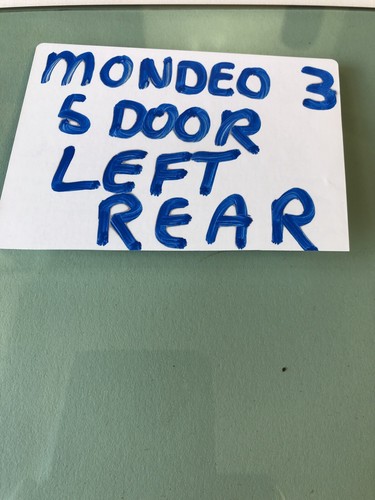 MONDEO 3
5 DOOR
LEFT
REAR